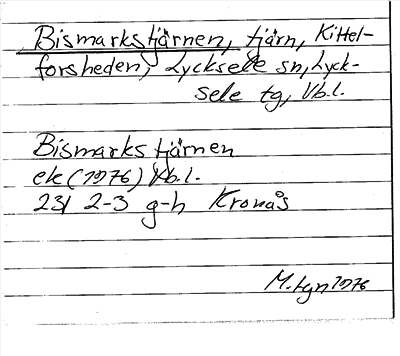 Bismarkstjärnen, tjärn, Kittel-
forsheden, Lycksele sn, Lyck-
sele tg, Vb.l.
Bismarkstjärnen
ek (1976) Vb.l.
231 2-3 g-h Kronås
M. Lyn 1976